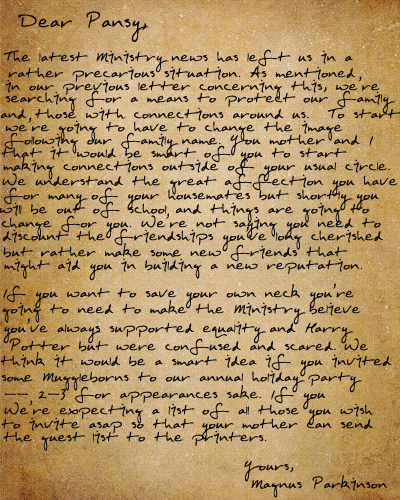 Dear Pansy,
The latest Ministry news has left us in a
rather precarious situation. As mentioned,
in our previous letter concerning this, we're
searching for a means to protect our family
and, those with connections around us. To start
we're going to have to change the image
folowing our family name. You mother and I
that it would be smart of you to start
making connections outside of your usual circle.
We understand the great affection you have
for many of your housemates but shortly you
will be out of school, and things are going to
change for you. We're not saying you need to
discount the friendships you've long cherished
but rather make some new friends that
might aid you in building a new reputation.
If you want to save your own neck you're
going to need to make the Ministry believe
you've always supported equality and Harry
Potter but were confused and scared. We
think it would be a smart idea if you invited
some Muggleborns to our annual holiday party
-- 2-3 for appearances sake. If you
We're expecting a list of all those you wish
to invite asap so that your mother can send
the guest list to the printers.
Yours,
Magnus Parkinson